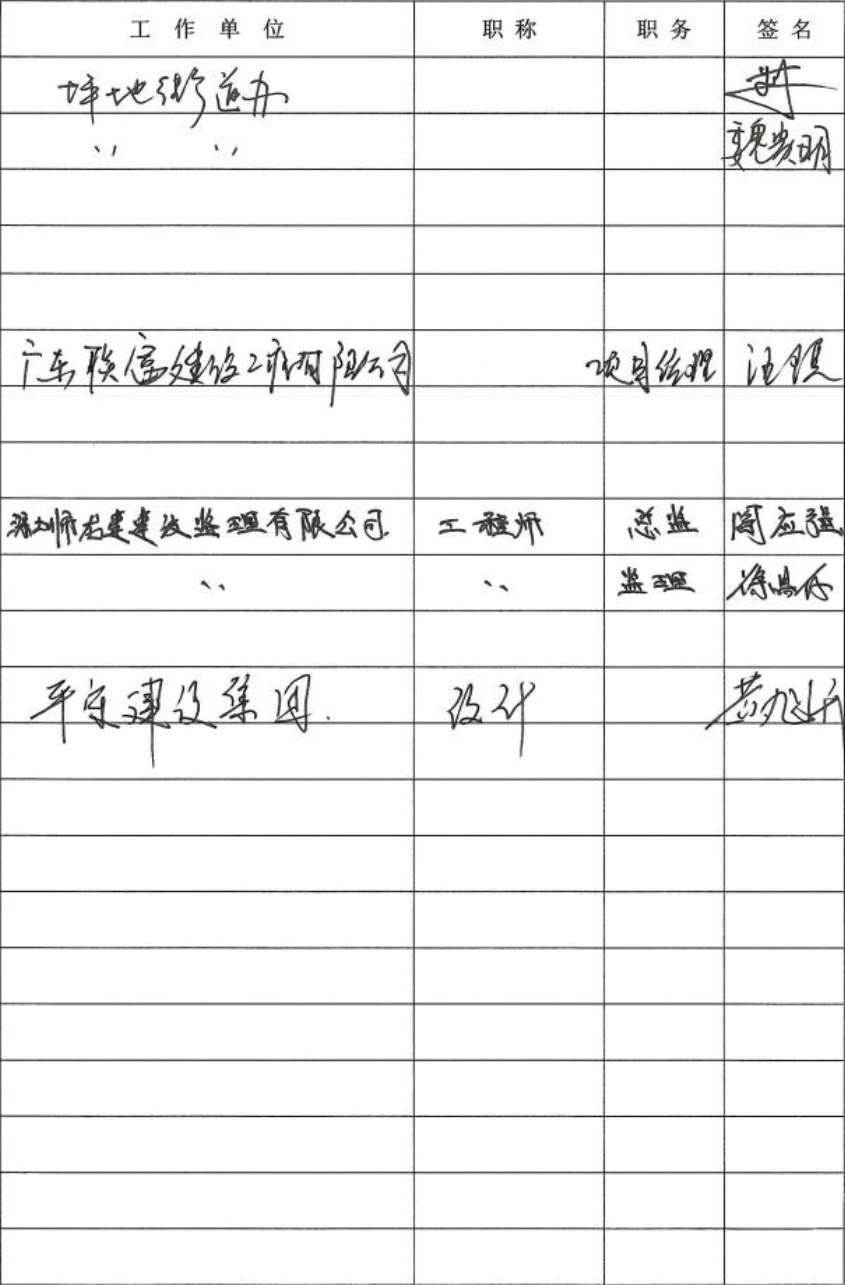 工作单位 职称 职务 签名
坪地街道办
〃 〃 魏贵明
广东联富建设工程有限公司 项目经理 汪琪
深圳市龙建建设监理有限公司 工程师 总监 阎应强
〃 〃 监理 徐
平安建设集团 设计 黄